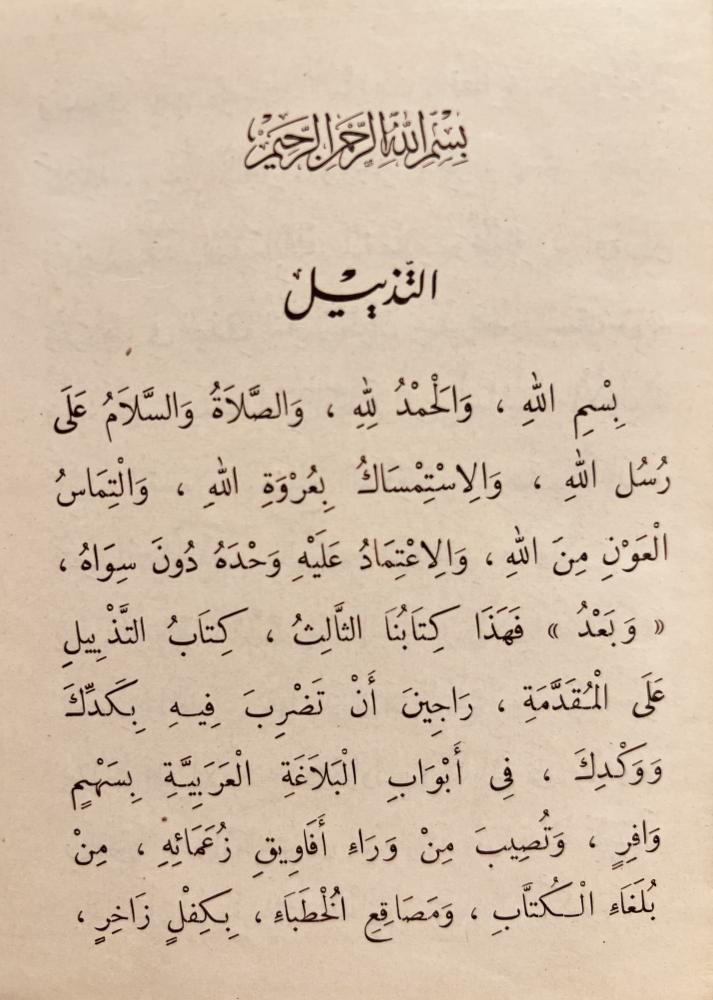 بِسْمِ اللهِ الرَّحْمٰنِ الرَّحِيْمِ
التَّذْيِيل
بِسْمِ اللهِ ، وَالْحَمْدُ لِلهِ ، وَالصَّلَاةُ وَالسَّلَامُ عَلَى
رُسُل اللهِ ، وَالِاسْتِمْسَاكُ بِعُرْوَةِ اللهِ ، وَالْتِمَاسُ
الْعَوْنِ مِنَ اللهِ ، وَالِاعْتِمَادُ عَلَيْهِ وَحْدَهُ دُونَ سِوَاهُ ،
« وَبَعْدُ » فَهَذَا كِتَابُنَا الثَّالِثُ ، كِتَابُ التَّذْيِيلِ
عَلَى الْمُقَدَّمَةِ ، رَاجِينَ أَنْ تَضْرِبَ فِيهِ بِكَدِّكَ
وَوَكْدِكَ ، فِى أَبْوَابِ الْبَلَاغَةِ الْعَرَبِيَّةِ بِسَهْمٍ
وَافِرٍ ، وَتُصِيبَ مِنْ وَرَاءِ أَفَاوِيقِ زُعَمَائِهِ ، مِنْ
بُلَغَاءِ الْكُتَّابِ ، وَمَصَاقِعِ الْخُطَبَاءِ ، بِكِفْلٍ زَاخِرٍ ،